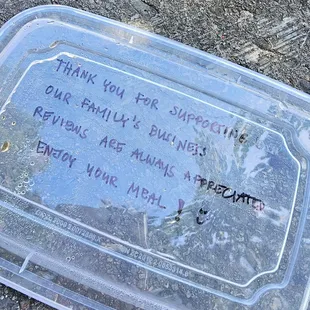 THANK YOU FOR SUPPORTING
OUR FAMILY'S BUSINESS
REVIEWS ARE ALWAYS APPRECIATED
ENJOY YOUR MEAL! :)